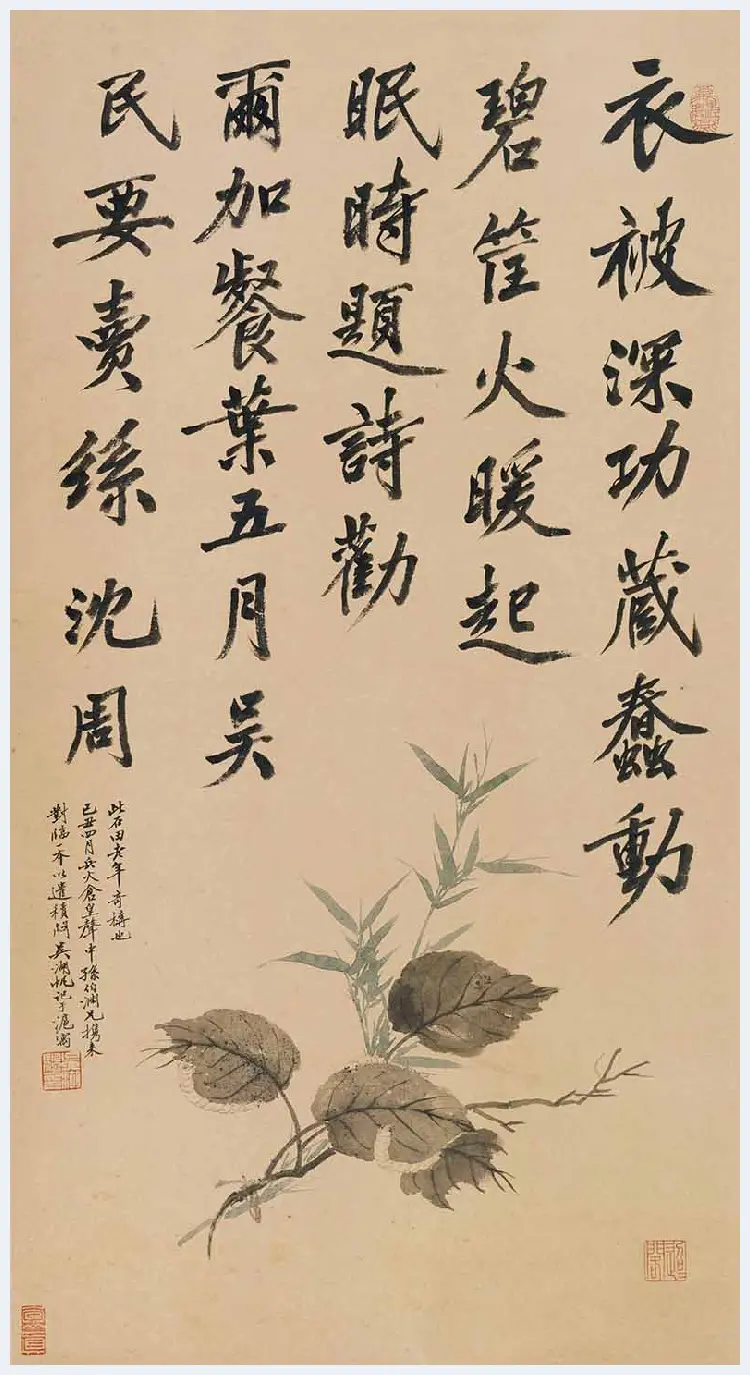 衣被深功藏蠢動
碧筐火暖起
眠時題詩勸
爾加餐葉五月吳
民要賣絲沈周
此石田老年奇構也
己丑四月兵火倉皇聲中孫伯淵兄携來
對臨一本以遣積悶吳湖帆記于滬寓